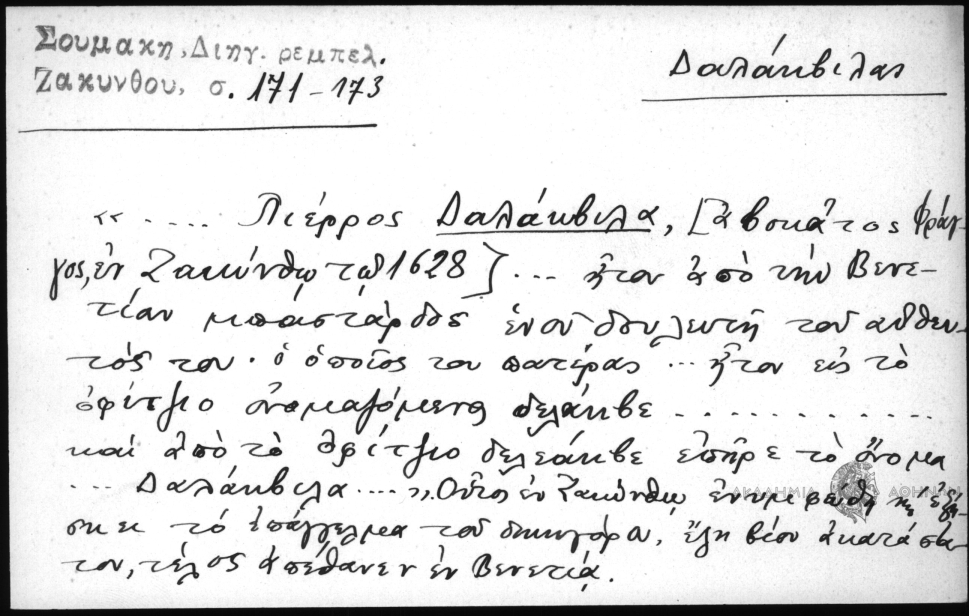 Σουμακη, Διηγ. ρεμπελ.
Ζακυνθου, σ. 171-173
Δαλάκβιλας
«..... Πιέρρος Δαλάκβιλα, [ἀβοκᾶτος Φράγ-
γος, ἐν Ζακύνθῳ τῷ 1628] ... ἦτον ἀπὸ τὴν Βενε-
τίαν μπαστάρδος ἑνοῦ δουλευτῆ τοῦ αὐθεν-
τός του· ὁ ὁποῖος του πατέρας ... ἦτον εἰς τὸ
ὀφίτζιο ὀνομαζόμενο δελάκβε ............
καὶ ἀπὸ τὸ ὀφίτζιο δελεάκβε ἐπῆρε τὸ ὄνομα
... Δαλάκβιλα ....», Οὗτος ἐν Ζακύνθῳ ἐνυμφεύθη
τὸ ἐπάγγελμα τοῦ δικηγόρου, ἔζη βίον ἀκατάστα-
τον, τέλος ἀπέθανεν ἐν Βενετίᾳ.
ΑΚΑΔΗΜΙΑ ΑΘΗΝΩΝ